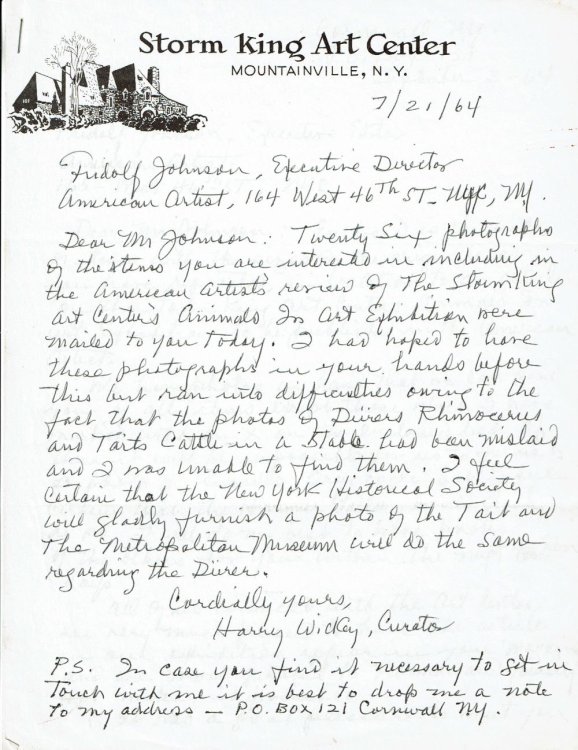 Storm King Art Center
MOUNTAINVILLE, N.Y.
7/21/64
Fridolf Johnson, Executive Director
American Artist, 164 West 46th ST. NYC, NY.
Dear Mr Johnson: Twenty Six photographs
of the items you are interested in including in
the American Artists review of The Storm King
Art Center's Animals In Art Exhibition were
mailed to you Today. I had hoped to have
these photographs in your hands before
this but ran into difficulties owing to the
fact that the photos of Dürers Rhinocerus
and Taits Cattle in a Stable had been mislaid
and I was unable to find them. I feel
certain that the New York Historical Society
will gladly furnish a photo of the Tait and
The Metropolitan Museum will do the same
regarding the Dürer.
Cordially yours,
Harry Wickey, Curator
P.S. In case you find it necessary to get in
Touch with me it is best to drop me a note
To my address — P.O. BOX 121 Cornwall NY.